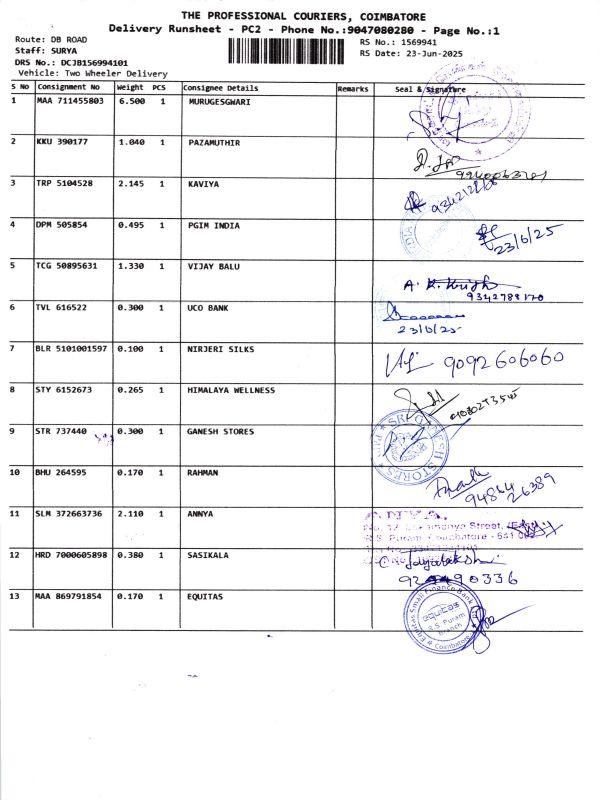 THE PROFESSIONAL COURIERS, COIMBATORE
Delivery Runsheet - PC2 - Phone No.:9047080280 - Page No.:1
Route: DB ROAD
RS No.: 1569941
Staff: SURYA
RS Date: 23-Jun-2025
DRS No.: DCJB156994101
Vehicle: Two Wheeler Delivery
S No Consignment No Weight PCS Consignee Details Remarks Seal & Signature
1 MAA 711455803 6.500 1 MURUGESGWARI
2 KKU 390177 1.040 1 PAZAMUTHIR
3 TRP 5104528 2.145 1 KAVIYA
4 DPM 505854 0.495 1 PGIM INDIA
23/6/25
5 TCG 50895631 1.330 1 VIJAY BALU
A.
6 TVL 616522 0.300 1 UCO BANK
23/6/25
7 BLR 5101001597 0.100 1 NIRJERI SILKS
9092606060
8 STY 6152673 0.265 1 HIMALAYA WELLNESS
9 STR 737440 0.300 1 GANESH STORES
SRI GANESH STORES
10 BHU 264595 0.170 1 RAHMAN
26389
11 SLM 372663736 2.110 1 ANNYA
Street, (East)
R.S. Puram, Coimbatore - 641 002
12 HRD 7000605898 0.380 1 SASIKALA
90336
13 MAA 869791854 0.170 1 EQUITAS
Equitas Small Finance Bank
equitas
R.S. Puram
Branch
Coimbatore